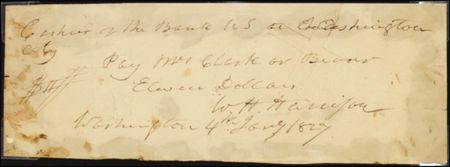 Cashier of the Bank U S at Washington
City
Pay Mrs Clark or Bearer
Eleven Dollars
W. H. Harrison
Washington 4th Jany 1827